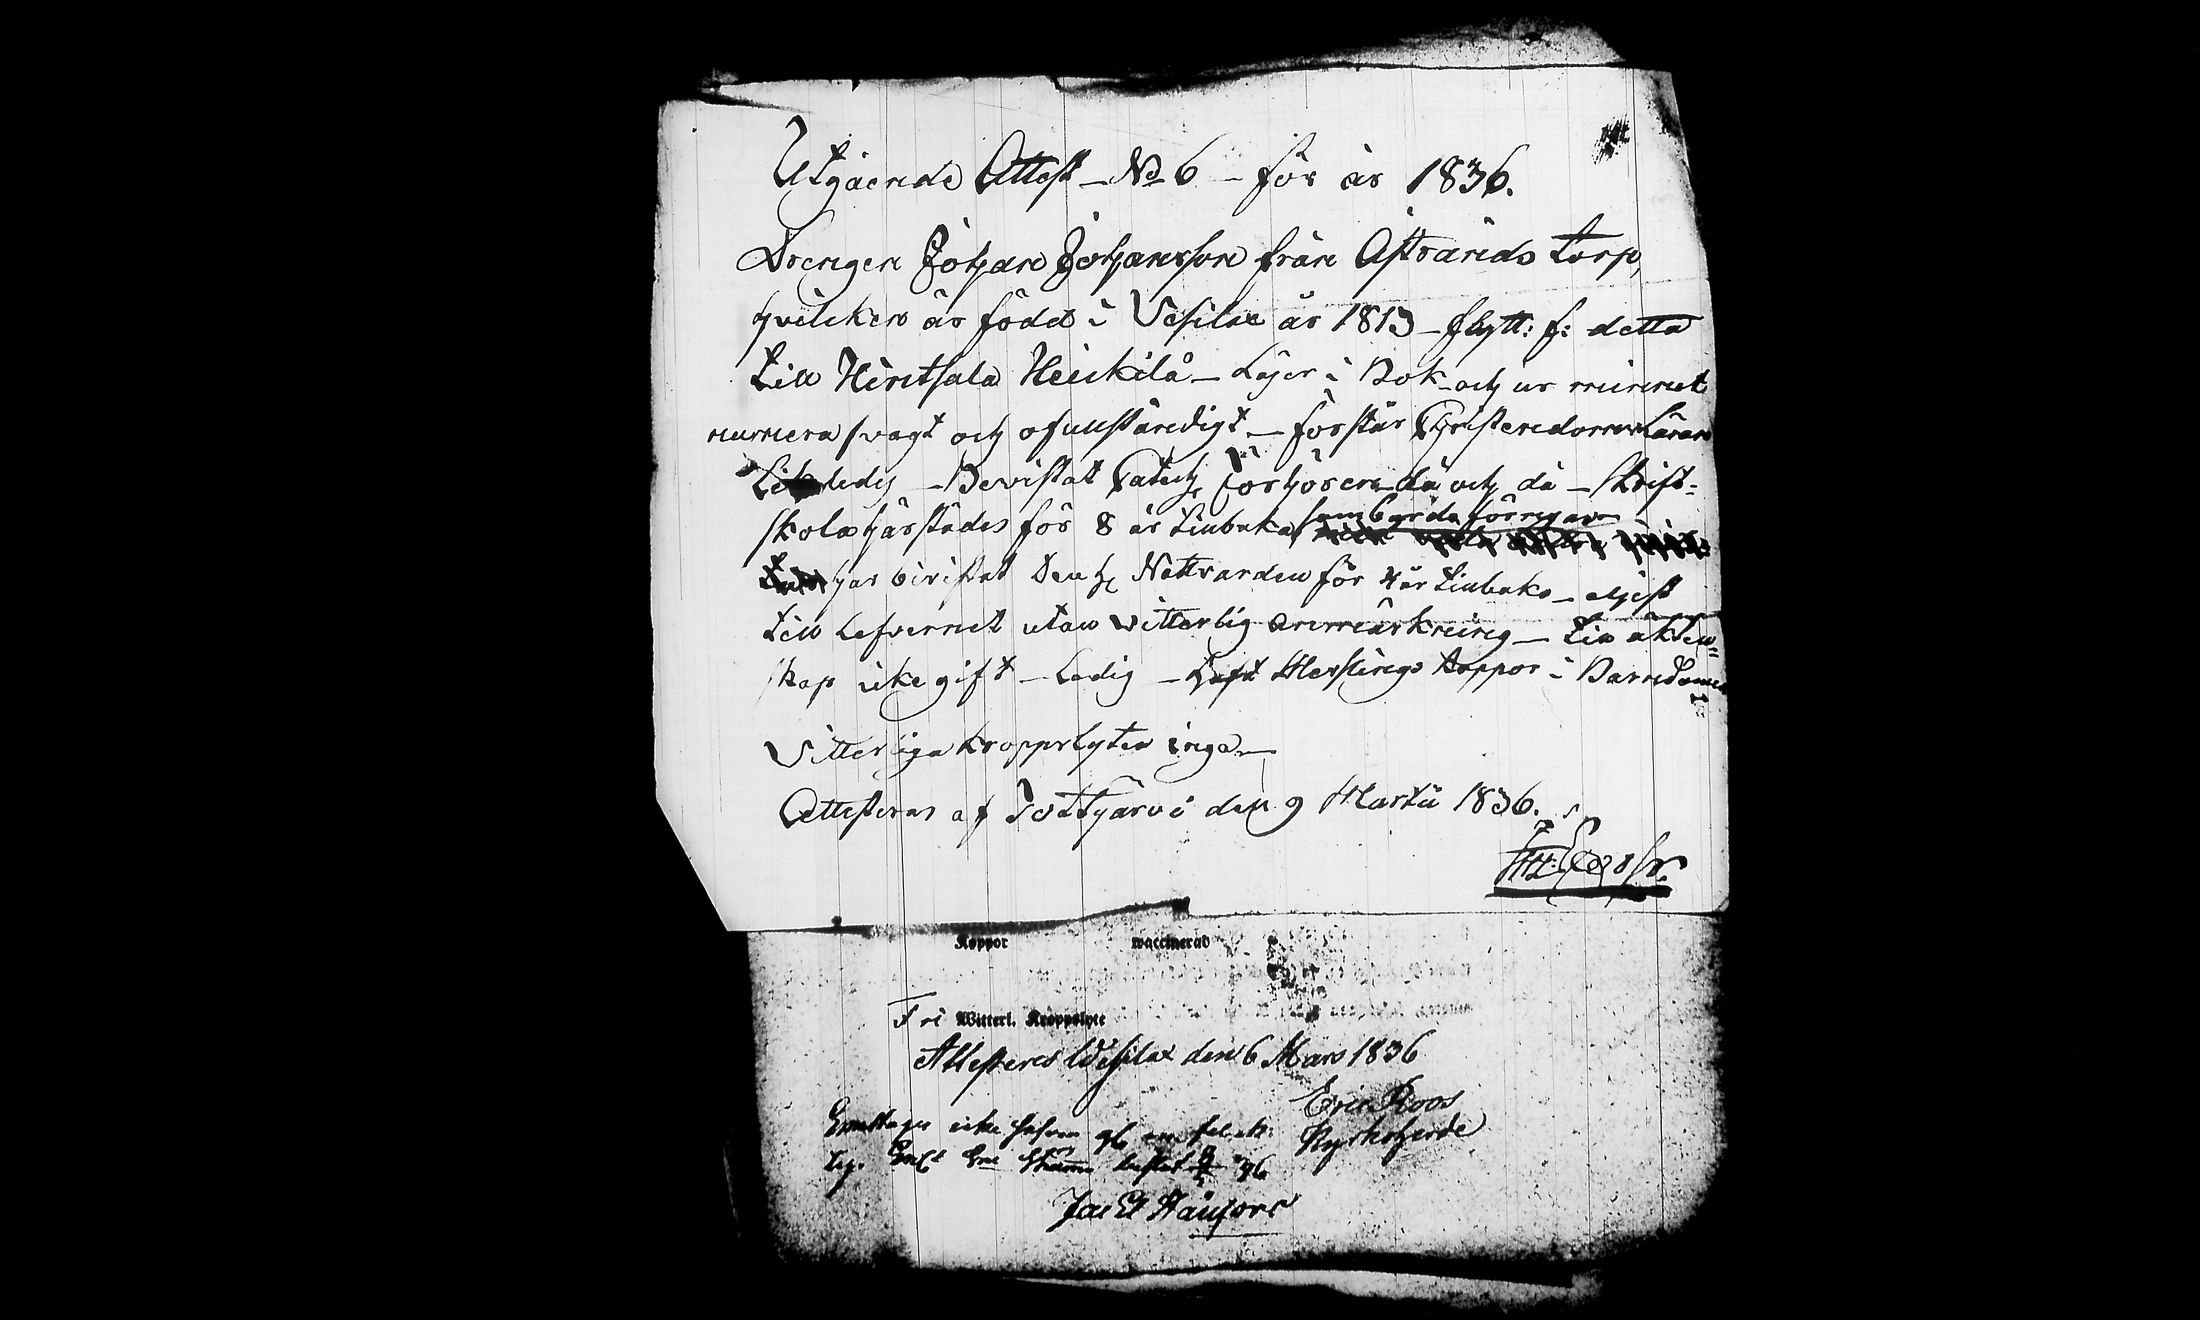 Utgående Attest – No 6 – för år 1836.
Drengen Johan Johansson från Astrands torp,
hvilken är född i Vesilax år 1813 – flytt: f: detta
till Hintsala Heickilä – Läser i Bok och ur minnet
numera svagt och ofullständigt – förstår Christendoms Läran
– Bevistat Catech Förhören då och då – Skrift-
skola härstädes för 8 år tillbaka
har bivistat Den H. Nattvarden för 4 år tillbaka –
till Lefvernet utan vitterlig anmärkning – till äkten-
skap icke gift – Ledig – Haft Messlings koppor i Barndomen
Vitterliga kroppslyten inga –
Attesteras af Tottijärvi den 9 Martii 1836.
Koppor waccinerad
Fri Witterl. Kroppslyte
Attesteras Wesilax den 6 Mars 1836
Eric Roos
Kyrkoherde